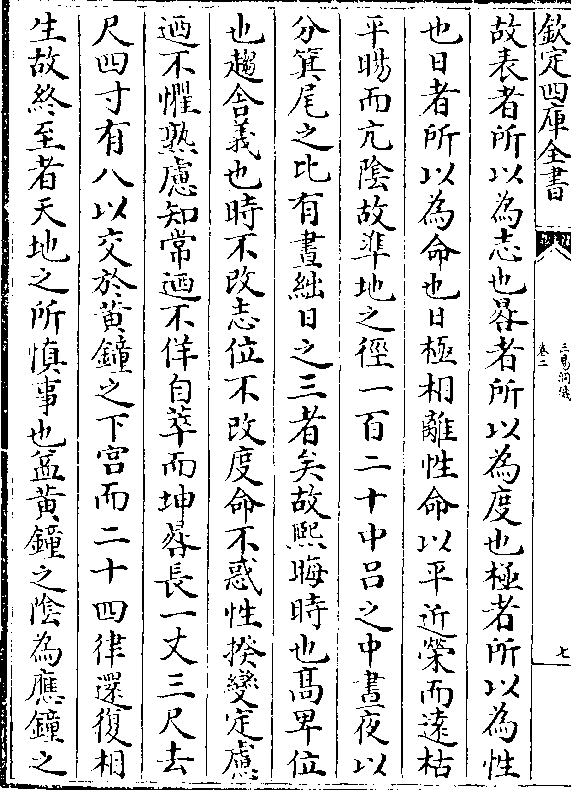 欽定四庫全書
三易洞璣
卷二
七
故表者所以為志也晷者所以為度也極者所以為性
也日者所以為命也日極相離性命以平近榮而遠枯
平暘而亢陰故準地之徑一百二十中呂之中晝夜以
分箕尾之比有晝絀日之三者矣故熙晦時也髙卑位
也趨舍義也時不改志位不改度命不惑性揆變定慮
迺不懼熟慮知常迺不佯自萃而坤晷長一丈三尺去
尺四寸有八以交於黄鐘之下宫而二十四律還復相
生故終至者天地之所慎事也孟黄鐘之隂為應鐘之